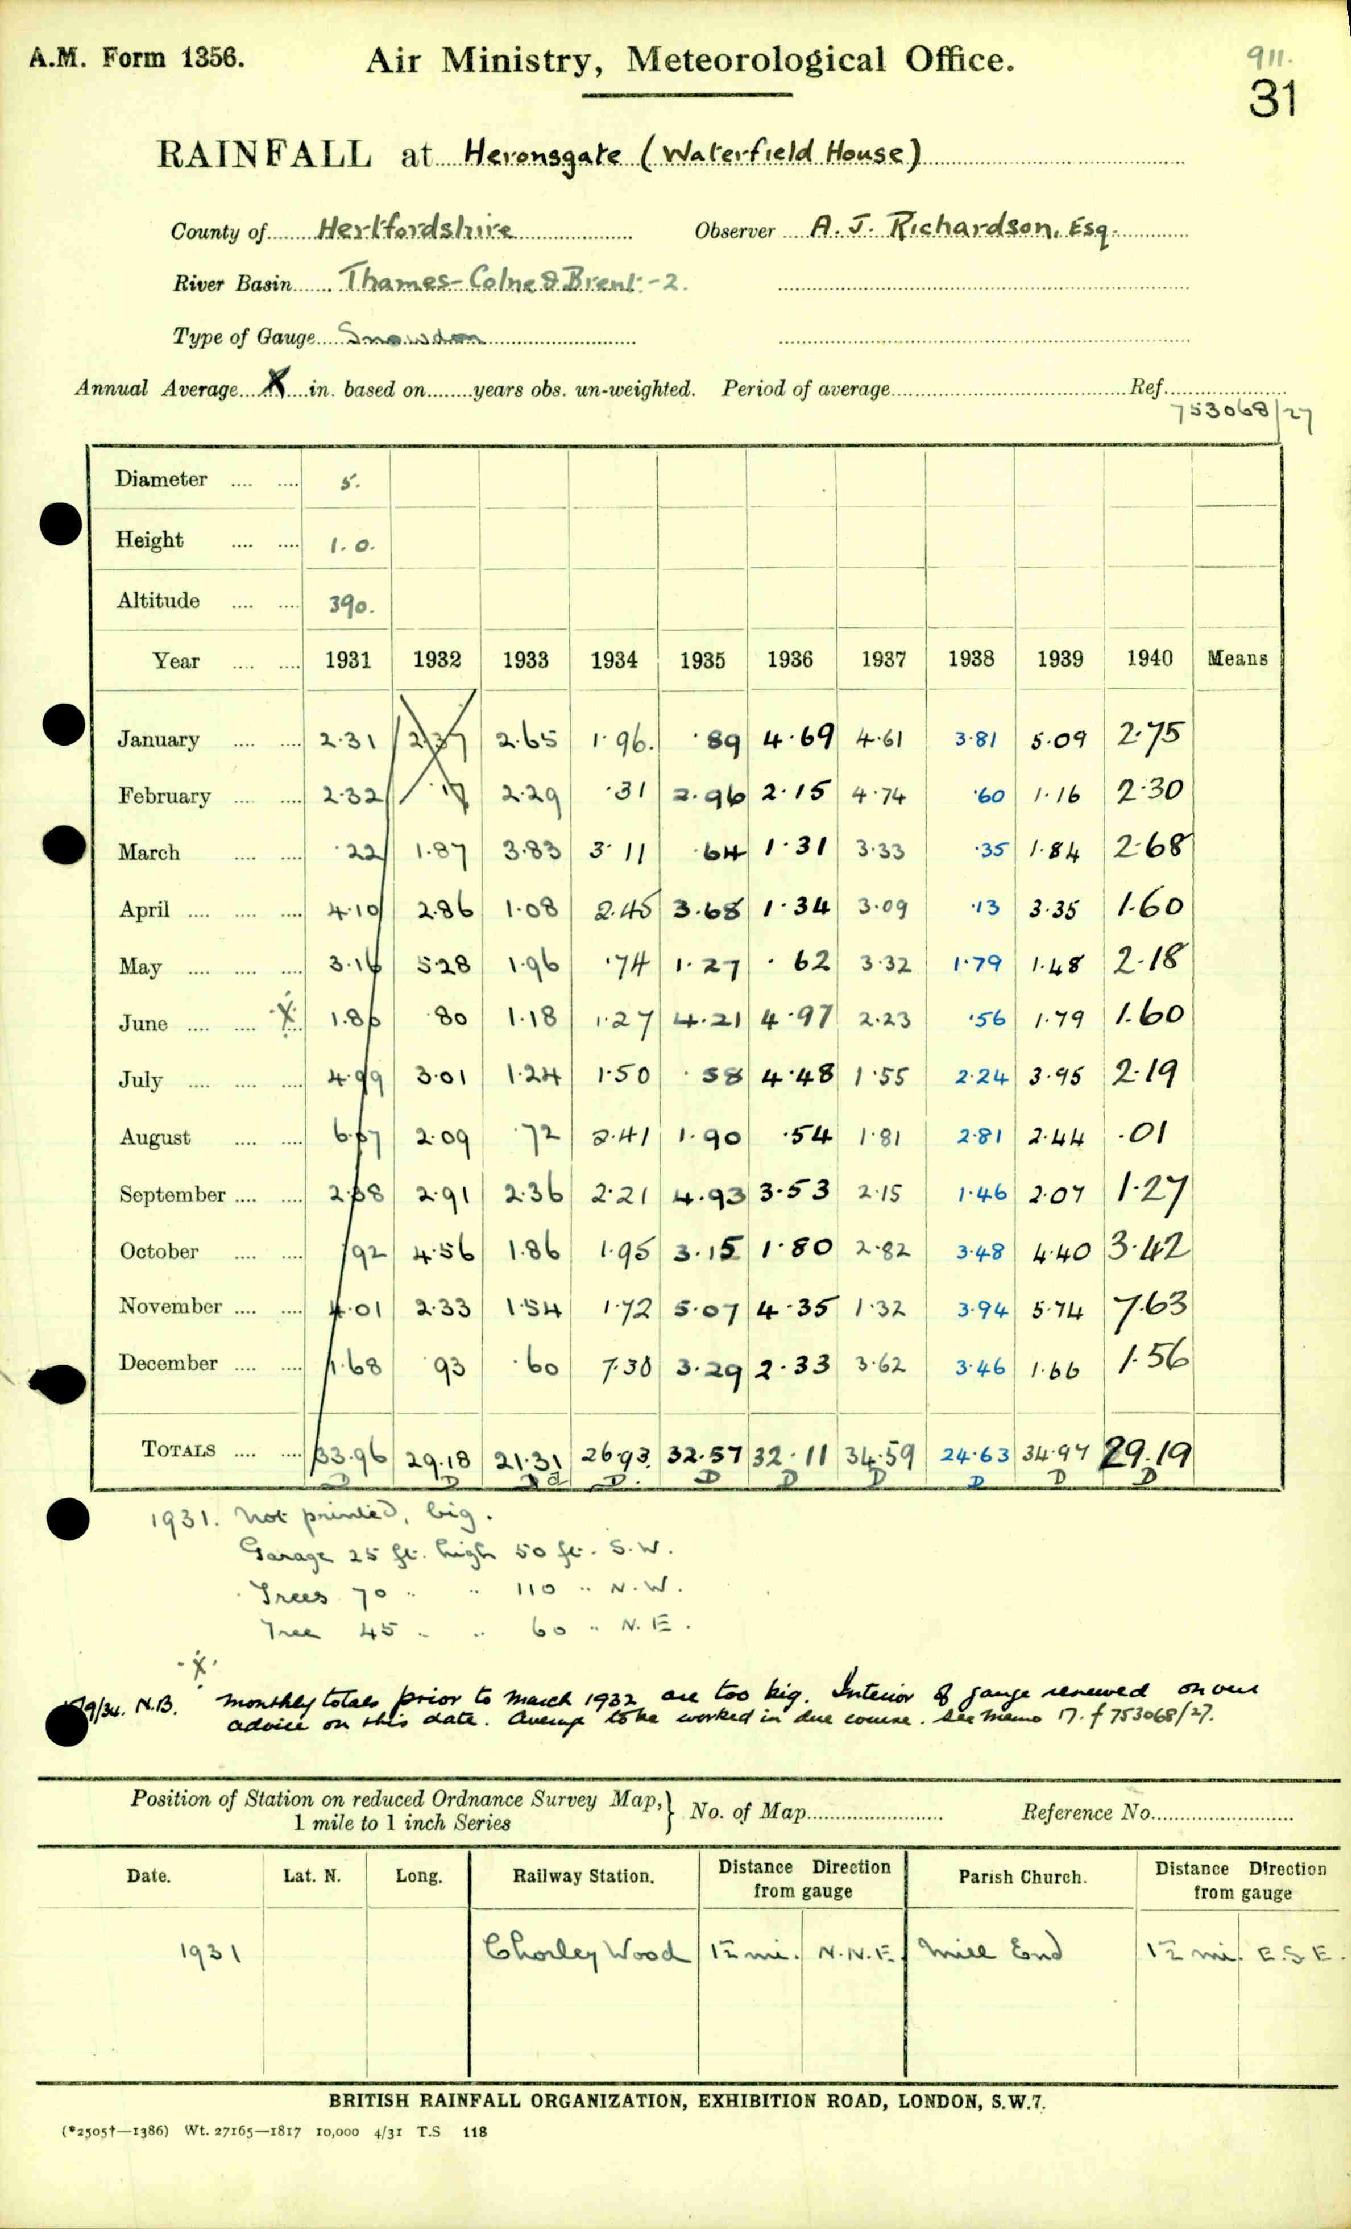 A.M. Form 1356.
Air Ministry, Meteorological Office.
911.
31
RAINFALL at Heronsgate (Waterfield House)
County of Hertfordshire Observer A. J. Richardson, Esq.
River Basin Thames - Colne & Brent - 2.
Type of Gauge Snowdon
Annual Average X in. based on years obs. un-weighted. Period of average Ref.
753068/27
Diameter 5.
Height 1.0.
Altitude 390.
Year 1931 1932 1933 1934 1935 1936 1937 1938 1939 1940 Means
January 2.31 2.37 2.65 1.96. .89 4.69 4.61 3.81 5.09 2.75
February 2.32 .17 2.29 .31 2.96 2.15 4.74 .60 1.16 2.30
March .22 1.87 3.83 3.11 .64 1.31 3.33 .35 1.84 2.68
April 4.10 2.86 1.08 2.45 3.68 1.34 3.09 .13 3.35 1.60
May 3.16 5.28 1.96 .74 1.27 .62 3.32 1.79 1.48 2.18
June X 1.80 .80 1.18 1.27 4.21 4.97 2.23 .56 1.79 1.60
July 4.99 3.01 1.24 1.50 .58 4.48 1.55 2.24 3.95 2.19
August 6.07 2.09 .72 2.41 1.90 .54 1.81 2.81 2.44 .01
September 2.38 2.91 2.36 2.21 4.93 3.53 2.15 1.46 2.07 1.27
October .92 4.56 1.86 1.95 3.15 1.80 2.82 3.48 4.40 3.42
November 4.01 2.33 1.54 1.72 5.07 4.35 1.32 3.94 5.74 7.63
December 1.68 .93 .60 7.30 3.29 2.33 3.62 3.46 1.66 1.56
TOTALS 33.96 29.18 21.31 26.93. 32.57 32.11 34.59 24.63 34.97 29.19
D D D d D. D D D D D D
1931. Not printed, big.
Garage 25 ft. high 50 ft. S.W.
Trees 70 " " 110 " N.W.
Tree 45 " " 60 " N.E.
X
9/34. N.B. Monthly totals prior to March 1932 are too big. Interior of gauge renewed on our
advice on this date. Average to be worked in due course. See memo 17. f 753068/27.
Position of Station on reduced Ordnance Survey Map, } No. of Map Reference No.
1 mile to 1 inch Series
Date. Lat. N. Long. Railway Station. Distance Direction from gauge Parish Church. Distance Direction from gauge
1931 Chorley Wood 1½ mi. N.N.E. Mill End 1½ mi. E.S.E.
BRITISH RAINFALL ORGANIZATION, EXHIBITION ROAD, LONDON, S.W.7.
(*2505†—1386) Wt. 27165—1817 10,000 4/31 T.S 118